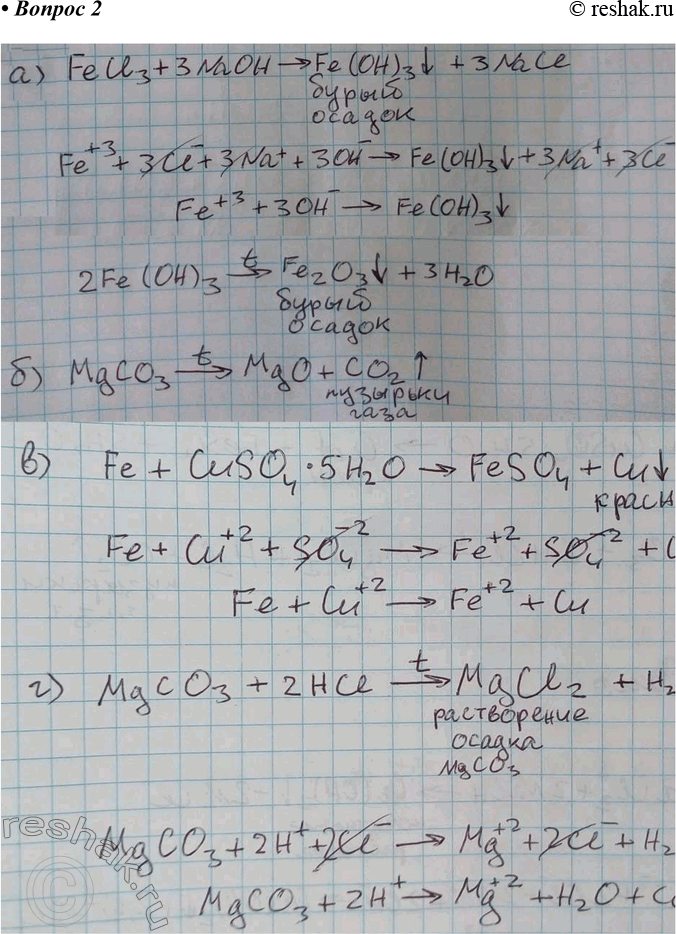 • Вопрос 2
© reshak.ru
а) FeCl₃ + 3NaOH → Fe(OH)₃↓ + 3NaCl
бурый
осадок
Fe⁺³ + 3Cl⁻ + 3Na⁺ + 3OH⁻ → Fe(OH)₃↓ + 3Na⁺ + 3Cl⁻
Fe⁺³ + 3OH⁻ → Fe(OH)₃↓
2Fe(OH)₃ →ᵗ Fe₂O₃↓ + 3H₂O
бурый
осадок
б) MgCO₃ →ᵗ MgO + CO₂↑
пузырьки
газа
в) Fe + CuSO₄·5H₂O → FeSO₄ + Cu↓
красн
Fe + Cu⁺² + SO₄⁻² → Fe⁺² + SO₄⁻² + C
Fe + Cu⁺² → Fe⁺² + Cu
г) MgCO₃ + 2HCl →ᵗ MgCl₂ + H₂
растворение
осадка
MgCO₃
MgCO₃ + 2H⁺ + 2Cl⁻ → Mg⁺² + 2Cl⁻ + H₂
MgCO₃ + 2H⁺ → Mg⁺² + H₂O + C
reshak.ru